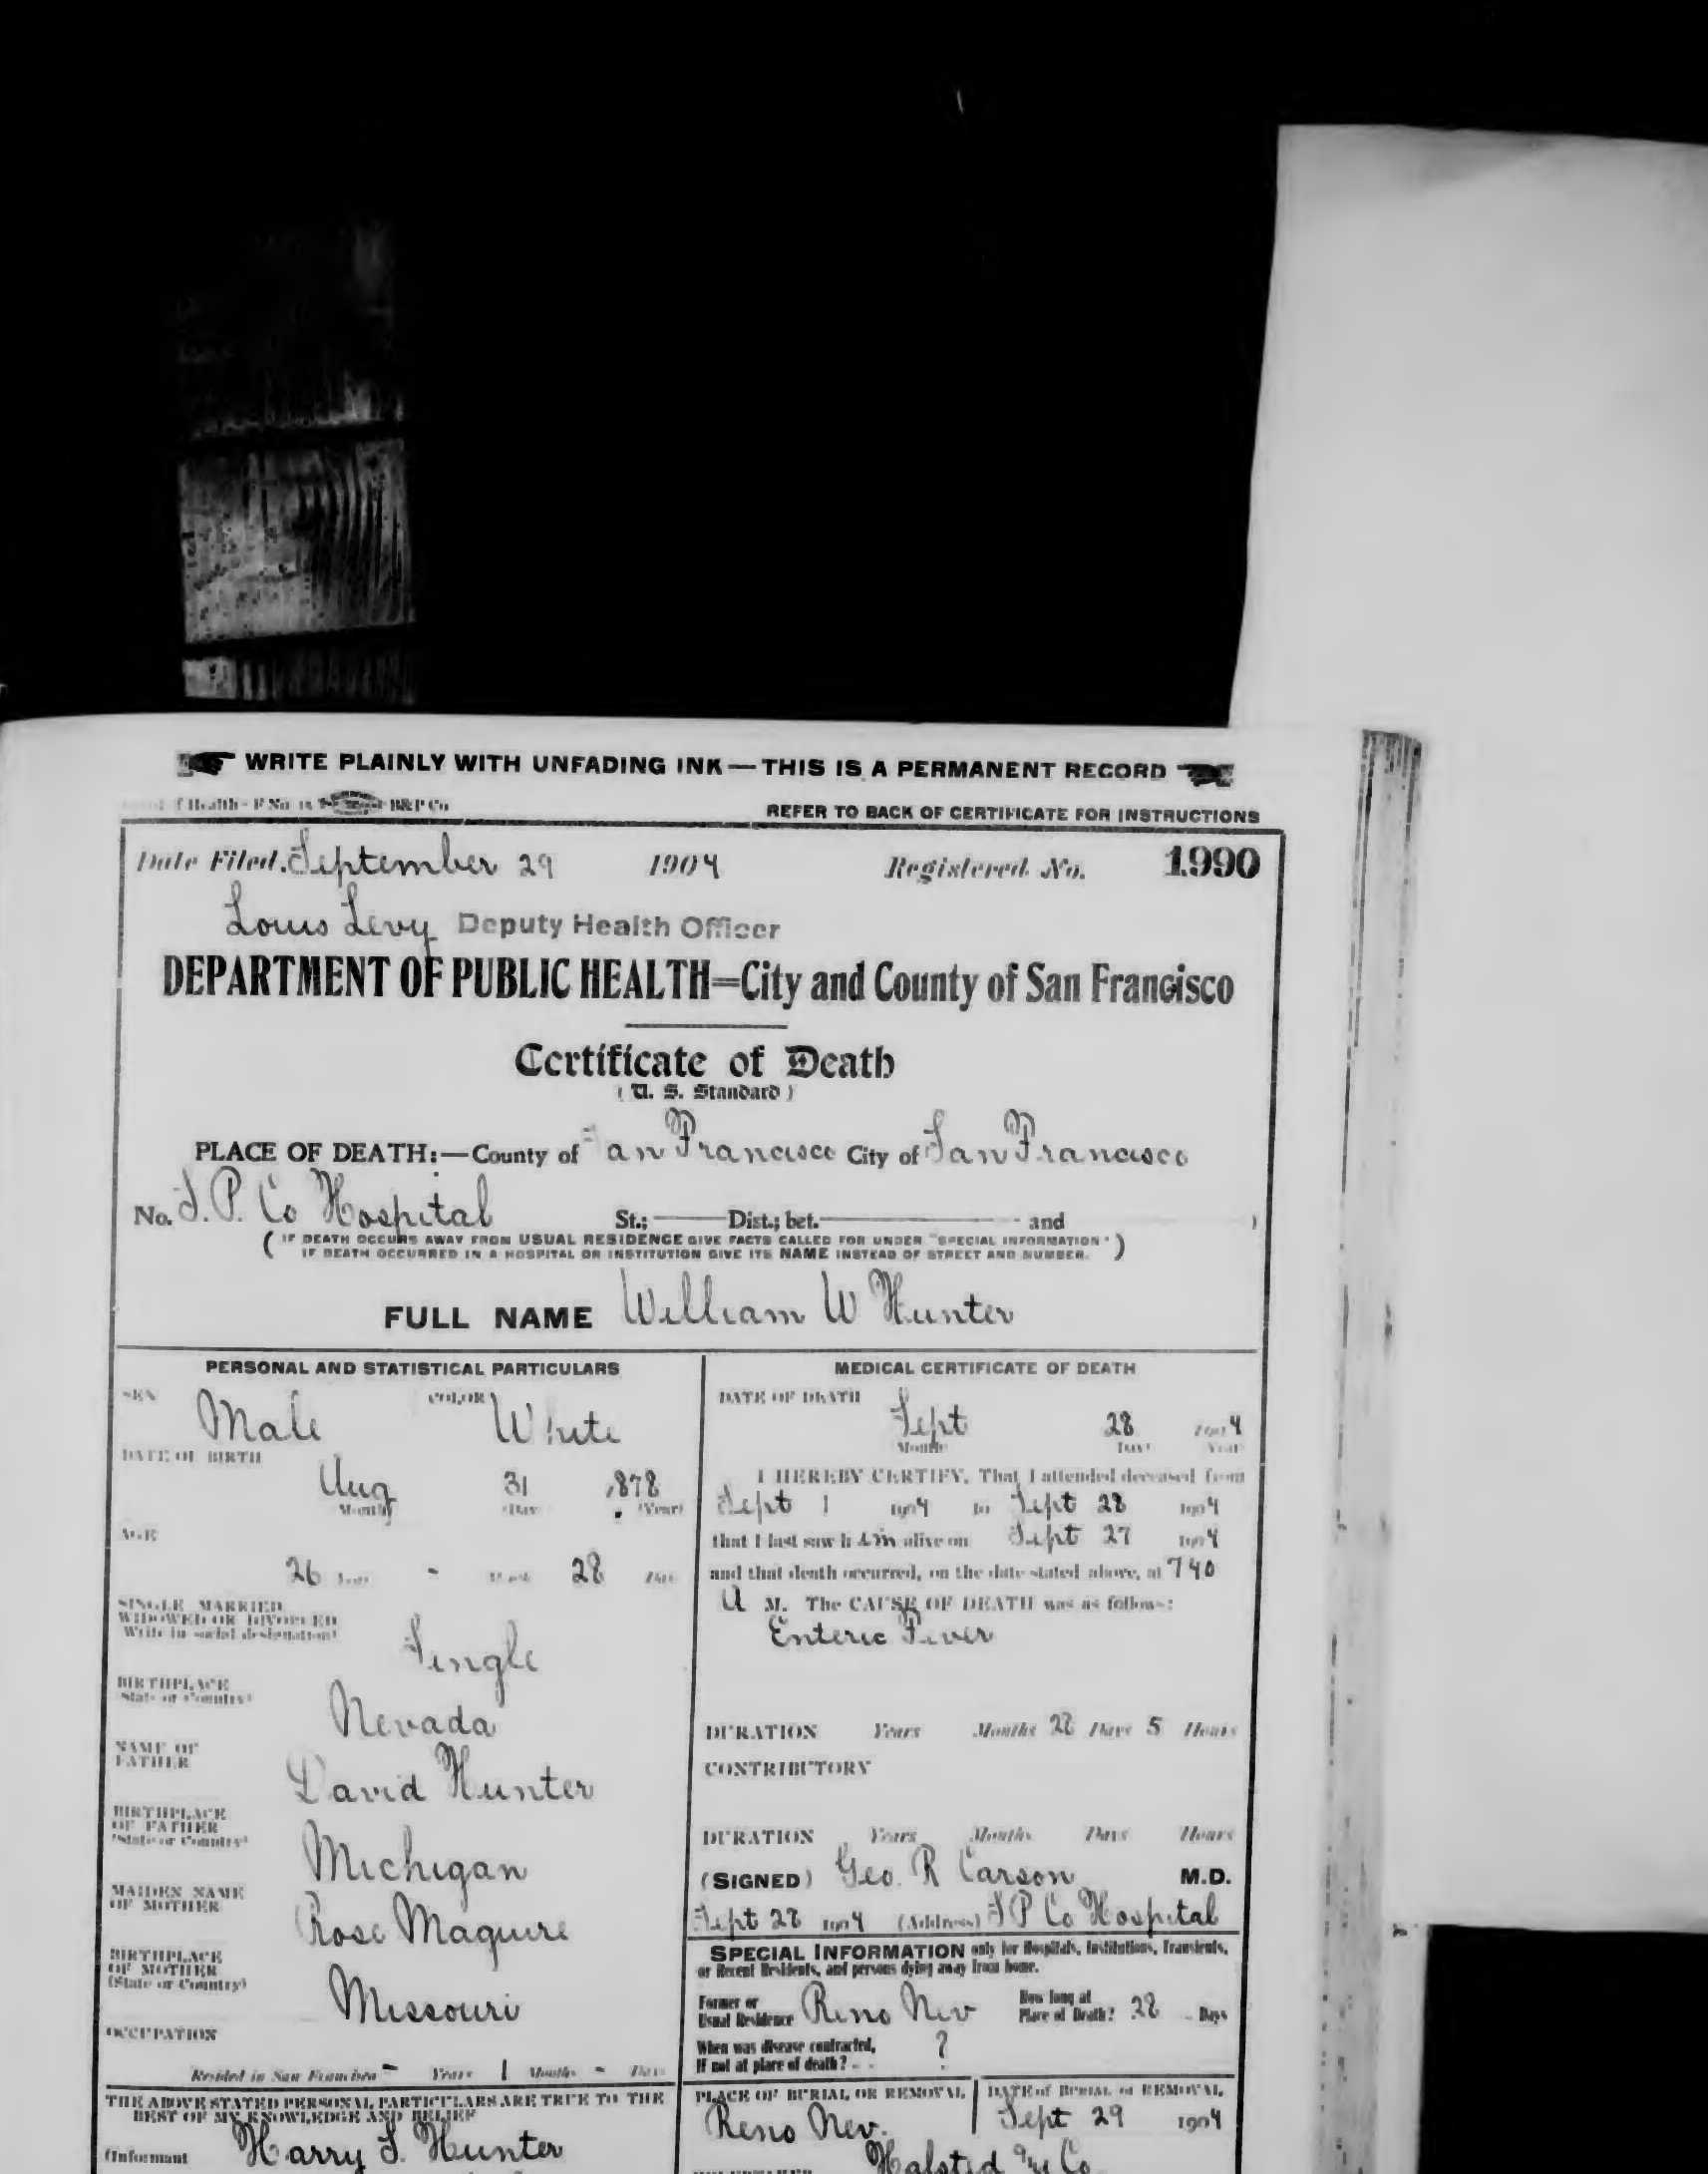 WRITE PLAINLY WITH UNFADING INK — THIS IS A PERMANENT RECORD
of Health - F No. 15 B&P Co
REFER TO BACK OF CERTIFICATE FOR INSTRUCTIONS
Date Filed. September 29 1904 Registered No. 1990
Louis Levy Deputy Health Officer
DEPARTMENT OF PUBLIC HEALTH=City and County of San Francisco
Certificate of Death
(U. S. Standard)
PLACE OF DEATH:—County of San Francisco City of San Francisco
No. S. P. Co Hospital St.; Dist.; bet. and )
( IF DEATH OCCURS AWAY FROM USUAL RESIDENCE GIVE FACTS CALLED FOR UNDER "SPECIAL INFORMATION"
IF DEATH OCCURRED IN A HOSPITAL OR INSTITUTION GIVE ITS NAME INSTEAD OF STREET AND NUMBER. )
FULL NAME William W Hunter
PERSONAL AND STATISTICAL PARTICULARS
SEX Male COLOR White
DATE OF BIRTH
Aug 31 1878
(Month) (Day) (Year)
AGE
26 Years - Months 28 Days
SINGLE, MARRIED,
WIDOWED OR DIVORCED
(Write in social designation)
Single
BIRTHPLACE
(State or Country)
Nevada
NAME OF
FATHER
David Hunter
BIRTHPLACE
OF FATHER
(State or Country)
Michigan
MAIDEN NAME
OF MOTHER
Rose Maguire
BIRTHPLACE
OF MOTHER
(State or Country)
Missouri
OCCUPATION
Resided in San Francisco - Years 1 Months - Days
THE ABOVE STATED PERSONAL PARTICULARS ARE TRUE TO THE
BEST OF MY KNOWLEDGE AND BELIEF
(Informant Harry S. Hunter
MEDICAL CERTIFICATE OF DEATH
DATE OF DEATH
Sept 28 1904
(Month) (Day) (Year)
I HEREBY CERTIFY, That I attended deceased from
Sept 1 1904 to Sept 28 1904
that I last saw h im alive on Sept 27 1904
and that death occurred, on the date stated above, at 7 40
A M. The CAUSE OF DEATH was as follows:
Enteric Fever
DURATION Years Months 28 Days 5 Hours
CONTRIBUTORY
DURATION Years Months Days Hours
(SIGNED) Geo. R Carson M.D.
Sept 28 1904 (Address) S P Co Hospital
SPECIAL INFORMATION only for Hospitals, Institutions, Transients,
or Recent Residents, and persons dying away from home.
Former or
Usual Residence Reno Nev
How long at
Place of Death? 28 Days
When was disease contracted,
If not at place of death? ?
PLACE OF BURIAL OR REMOVAL
Reno Nev.
DATE of BURIAL or REMOVAL
Sept 29 1904
Halsted & Co